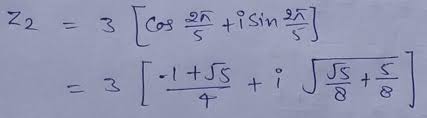 Z₂ = 3 [cos 2π/5 + i sin 2π/5]
= 3 [(-1 + √5)/4 + i √(√5/8 + 5/8)]